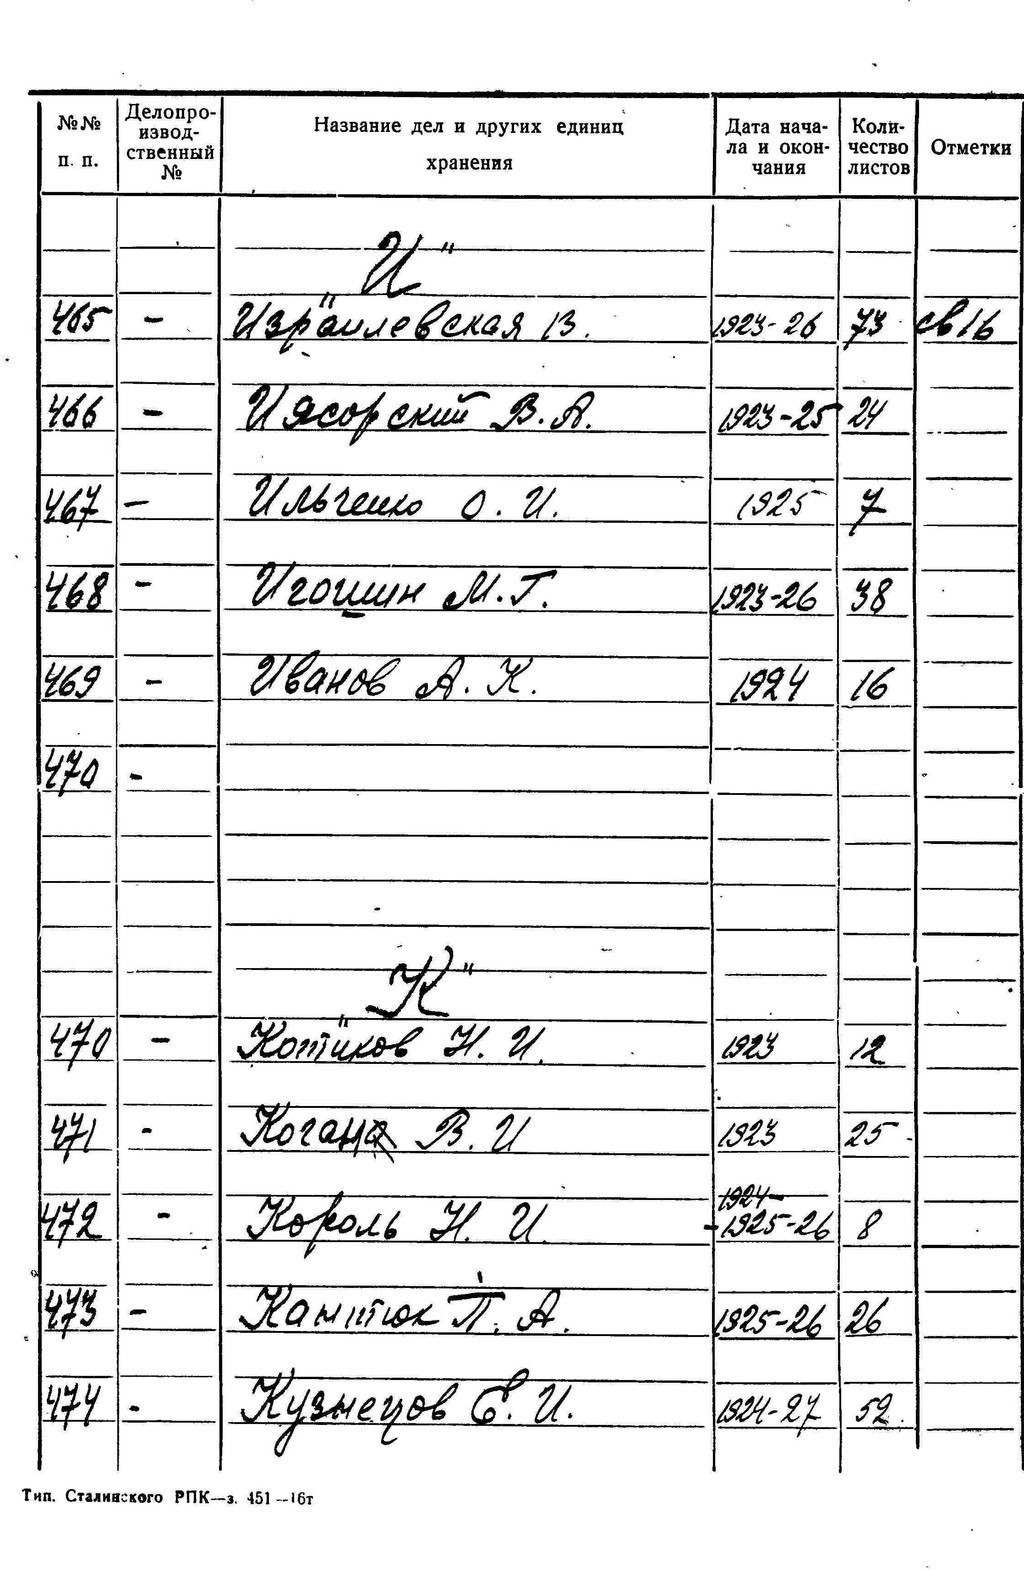 №№ п. п. Делопроизводственный № Название дел и других единиц хранения Дата начала и окончания Количество листов Отметки
"И"
465 - Израилевская В. 1923-26 73 св 16
466 - Иясорский В. А. 1923-25 24
467 - Ильченко О. И. 1925 7
468 - Игошин М. Г. 1923-26 38
469 - Иванов А. К. 1924 16
470 -
"К"
470 - Котиков Н. И. 1923 12
471 - Коган В. И 1923 25
472 - Король Н. И. 1924- -1925-26 8
473 - П. А. 1925-26 26
474 - Кузнецов Е. И. 1924-27 52
Тип. Сталинского РПК—з. 451—16т